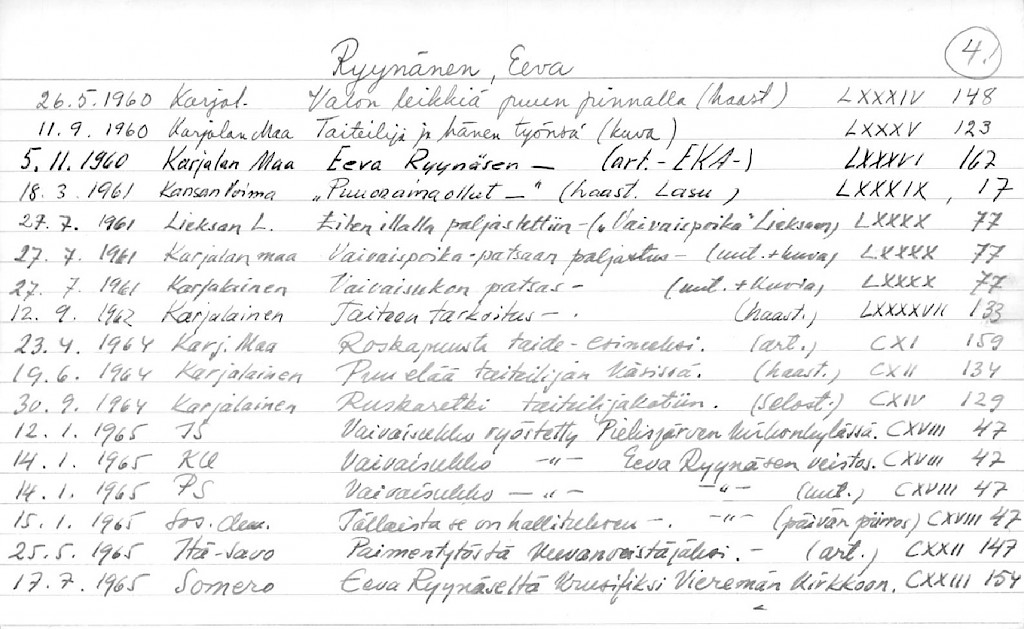 4.
Ryynänen, Eeva
26.5.1960 Karjal. Valon leikkiä puun pinnalla (haast) LXXXIV 148
11.9.1960 Karjalan Maa Taiteilija ja hänen työnsä (kuva) LXXXV 123
5.11.1960 Karjalan Maa Eeva Ryynäsen — (art.-EKA-) LXXXVI 162
18.3.1961 Kansan Voima (haast. Lasu) LXXXIX, 17
27.7.1961 Lieksan L. Eilen illalla paljastettiin-(„Vaivaispoika" Lieksaan) LXXXX 77
27.7.1961 Karjalan maa Vaivaispoika-patsaan paljastus- (uut.+kuva) LXXXX 77
27.7.1961 Karjalainen Vaivaisukon patsas- (uut.+kuvia) LXXXX 77
12.9.1962 Karjalainen Taiteen tarkoitus-. (haast.) LXXXXVII 133
23.4.1964 Karj. Maa Roskapuusta taide-esineeksi. (art.) CXI 159
19.6.1964 Karjalainen Puu elää taiteilijan käsissä. (haast.) CXII 134
30.9.1964 Karjalainen Ruskaretki taiteilijakotiin. (Selost.) CXIV 129
12.1.1965 IS Vaivaisukko ryöstetty Pielisjärven kirkonkylässä. CXVIII 47
14.1.1965 KU Vaivaisukko -"- Eeva Ryynäsen veistos. CXVIII 47
14.1.1965 PS Vaivaisukko -"- -"- (uut.) CXVIII 47
15.1.1965 Sos. dem. Tällaista se on -. -"- (päivän piirros) CXVIII 47
25.5.1965 Itä-Savo Paimentytöstä kuvanveistäjäksi.- (art.) CXXII 147
17.7.1965 Somero Eeva Ryynäseltä krusifiksi Vieremän kirkkoon. CXXIII 154